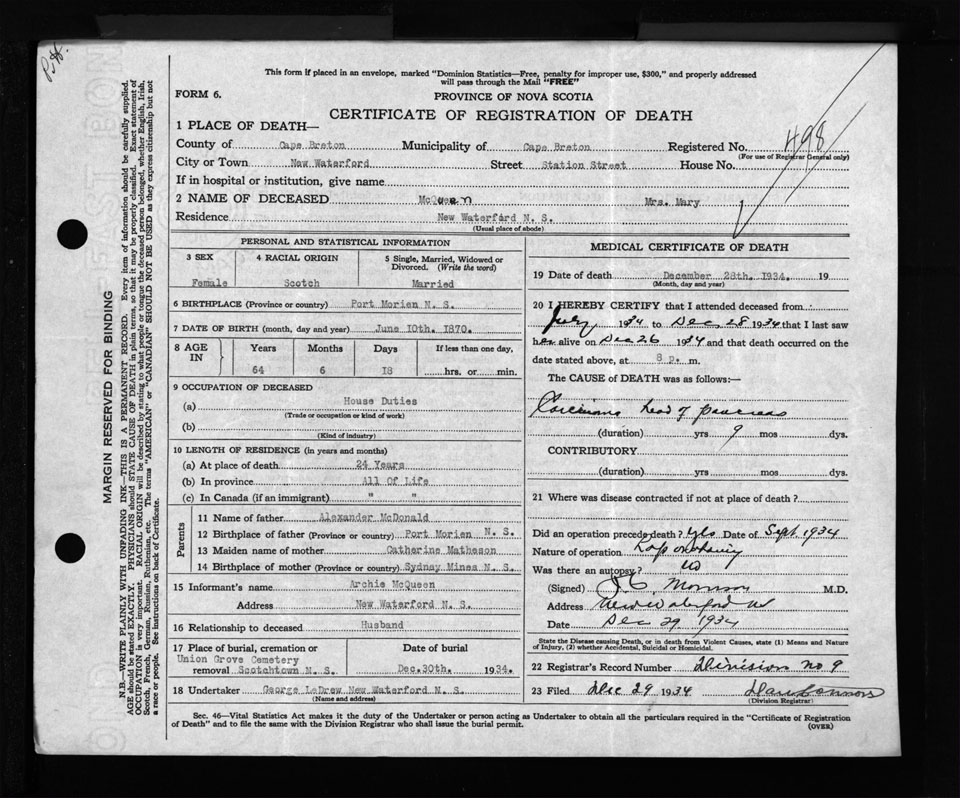 P.H.
This form if placed in an envelope, marked "Dominion Statistics—Free, penalty for improper use, $300," and properly addressed
will pass through the Mail "FREE"
FORM 6.
PROVINCE OF NOVA SCOTIA
CERTIFICATE OF REGISTRATION OF DEATH
498
1 PLACE OF DEATH—
County of Cape Breton Municipality of Cape Breton Registered No.
(For use of Registrar General only)
City or Town New Waterford Street Station Street House No.
If in hospital or institution, give name
2 NAME OF DECEASED McQueen Mrs. Mary
Residence New Waterford N. S.
(Usual place of abode)
PERSONAL AND STATISTICAL INFORMATION
3 SEX 4 RACIAL ORIGIN 5 Single, Married, Widowed or
Divorced. (Write the word)
Female Scotch Married
6 BIRTHPLACE (Province or country) Port Morien N. S.
7 DATE OF BIRTH (month, day and year) June 10th. 1870.
8 AGE IN Years Months Days If less than one day,
64 6 18 hrs. or min.
9 OCCUPATION OF DECEASED
(a) House Duties
(Trade or occupation or kind of work)
(b)
(Kind of industry)
10 LENGTH OF RESIDENCE (in years and months)
(a) At place of death 24 Years
(b) In province All Of Life
(c) In Canada (if an immigrant) " "
Parents
11 Name of father Alexander McDonald
12 Birthplace of father (Province or country) Port Morien N. S.
13 Maiden name of mother Catherine Matheson
14 Birthplace of mother (Province or country) Sydney Mines N. S.
15 Informant's name Archie McQueen
Address New Waterford N. S.
16 Relationship to deceased Husband
17 Place of burial, cremation or Date of burial
Union Grove Cemetery
removal Scotchtown N. S. Dec.30th. 1934.
18 Undertaker George LeDrew New Waterford N. S.
(Name and address)
MEDICAL CERTIFICATE OF DEATH
19 Date of death December 28th. 1934. 19
(Month, day and year)
20 I HEREBY CERTIFY that I attended deceased from
July 1934 to Dec 28 1934 that I last saw
her alive on Dec 26 1934 and that death occurred on the
date stated above, at 8 p. m.
The CAUSE of DEATH was as follows:—
Carcinoma head of pancreas
(duration) yrs 9 mos dys.
CONTRIBUTORY
(duration) yrs. mos. dys.
21 Where was disease contracted if not at place of death?
Did an operation precede death? Yes Date of Sept 1934
Nature of operation
Was there an autopsy? No
(Signed) M.D.
Address New Waterford NS
Date Dec 29 1934
State the Disease causing Death, or in death from Violent Causes, state (1) Means and Nature
of Injury, (2) whether Accidental, Suicidal or Homicidal.
22 Registrar's Record Number Division No 9
23 Filed Dec 29 1934
(Division Registrar)
Sec. 46—Vital Statistics Act makes it the duty of the Undertaker or person acting as Undertaker to obtain all the particulars required in the "Certificate of Registration
of Death" and to file the same with the Division Registrar who shall issue the burial permit.
(OVER)
MARGIN RESERVED FOR BINDING
N.B.—WRITE PLAINLY WITH UNFADING INK—THIS IS A PERMANENT RECORD. Every item of information should be carefully supplied.
AGE should be stated EXACTLY. PHYSICIANS should STATE CAUSE OF DEATH in plain terms, so that it may be properly classified. Exact statement of
OCCUPATION is very important. RACIAL ORIGIN will be described by stating to what people or tongue the deceased person belonged, whether English, Irish,
Scotch, French, German, Russian, Ruthenian, etc. The terms "AMERICAN" or "CANADIAN" SHOULD NOT BE USED as they express citizenship but not
a race or people. See instructions on back of Certificate.